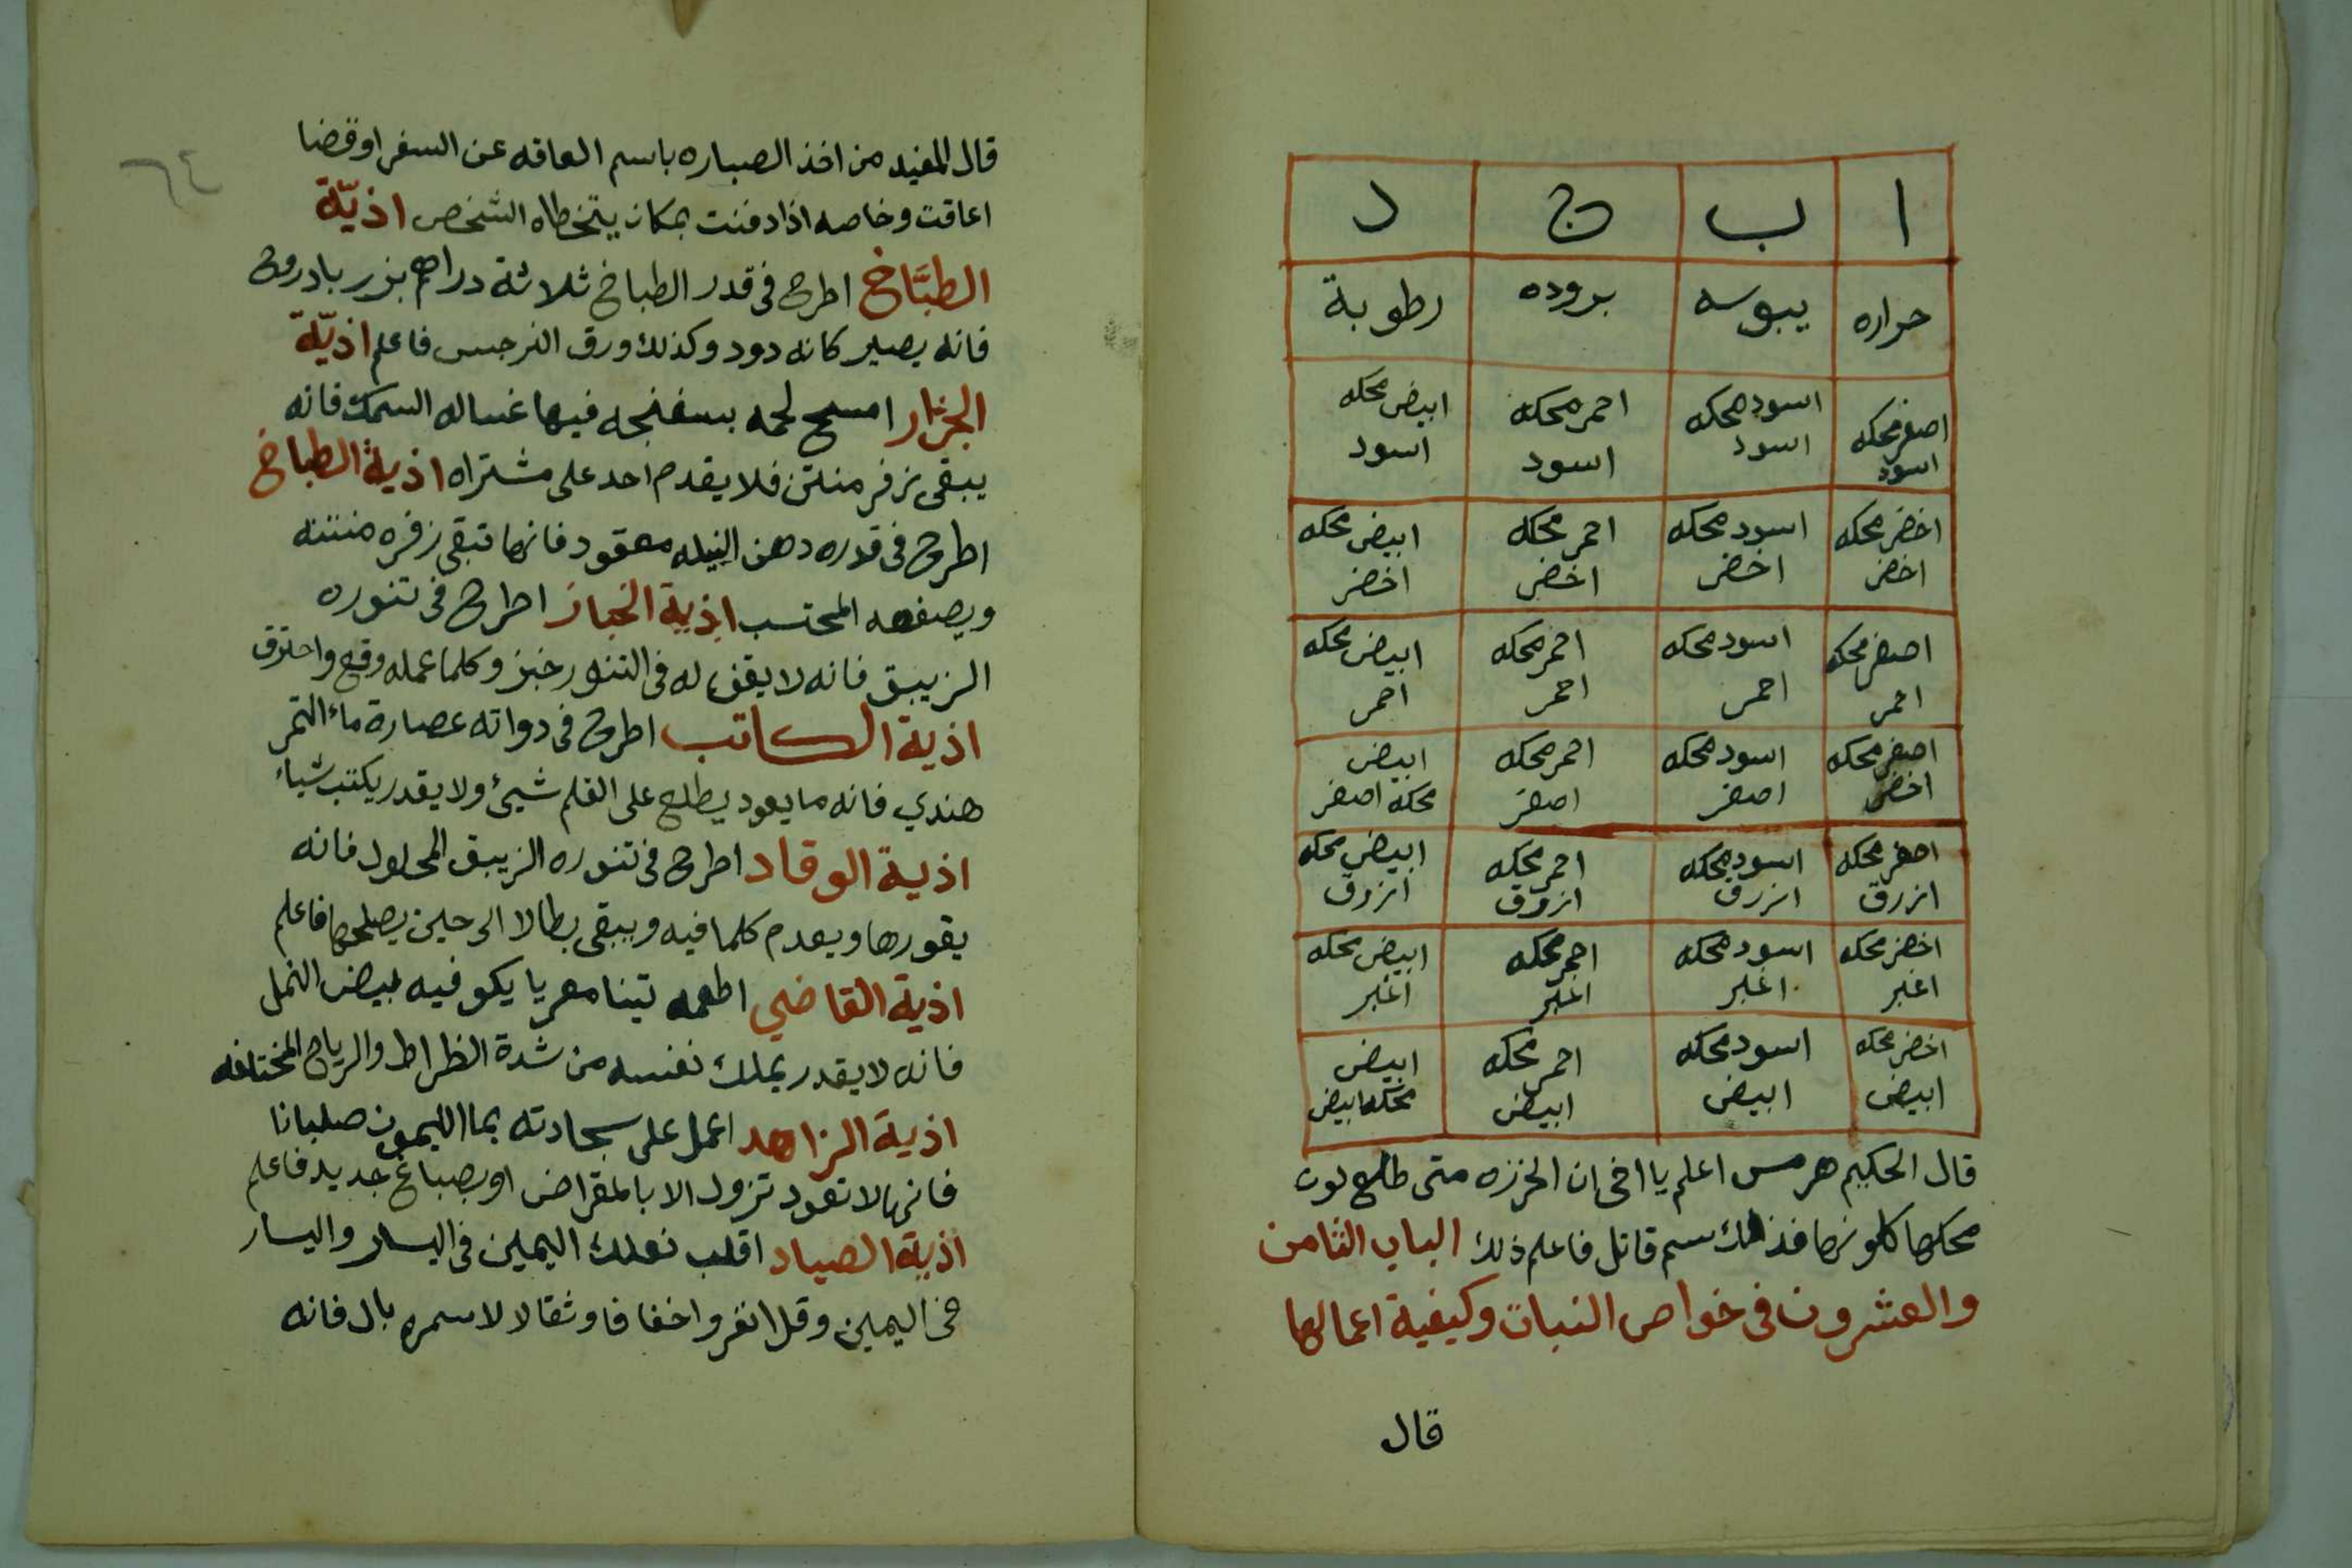 ا ب ج د
حراره يبوسه بروده رطوبة
اصفر محكه اسود محكه احمر محكه ابيض محكه
اسود اسود اسود اسود
اخضر محكه اسود محكه احمر محكه ابيض محكه
اخضر اخضر اخضر اخضر
اصفر محكه اسود محكه احمر محكه ابيض محكه
احمر احمر احمر احمر
اصفر محكه اسود محكه احمر محكه ابيض
اخضر اصفر اصفر محكه اصفر
اصفر محكه اسود محكه احمر محكه ابيض محكه
ازرق ازرق ازرق ازرق
اخضر محكه اسود محكه احمر محكه ابيض محكه
اغبر اغبر اغبر اغبر
اخضر محكه اسود محكه احمر محكه ابيض
ابيض ابيض ابيض محكه ابيض
قال الحكيم هرمس اعلم يا اخى ان الخرزه متى طلع لون
محكها كلونها فذلك سم قاتل فاعلم ذلك الباب الثامن
والعشرون فى خواص النبات وكيفية اعمالها
قال
٦٤
قال المفيد من اخذ الصباره باسم العاقه عن السفر او قضا
اعاقت وخاصه اذا دفنت بمكان يتخطاه الشخص اذيّة
الطبَّاخ اطرح فى قدر الطباخ ثلاثة دراهم بزر بادروج
فانه يصير كانه دود وكذلك ورق النرجس فاعلم اذيّة
الجزار امسح لحمه بسفنجه فيها غساله السمك فانه
يبقى زفر منتن فلا يقدم احد على مشتراه اذية الطباخ
اطرح فى قدره دهن النيله معقود فانها تبقى زفره منتنه
ويصفعه المحتسب اذية الخباز اطرح فى تنوره
الزيبق فانه لا يقف له فى التنور خبز وكلما عمله وقع واحترق
اذية الكاتب اطرح فى دواته عصارة ماء التمر
هندي فانه ما يعود يطلع على القلم شيئ ولا يقدر يكتب شياء
اذية الوقاد اطرح فى تنوره الزيبق المحلول فانه
يقورها ويعدم كلما فيه ويبقى بطالا الى حين يصلحها فاعلم
اذية القاضي اطعمه تبنا معريا يكو فيه بيض النمل
فانه لا يقدر يملك نفسه من شدة الظراط والرياح المختلفه
اذية الزاهد اعمل على سجادته بما الليمون صلبانا
فانها لا تعود تزول الا بالمقراض او بصباغ جديد فاعلم
اذية الصياد اقلب نعلك اليمين فى اليسار واليسار
فى اليمين وقل انفروا خفافا وثقالا لا سمره بال فانه